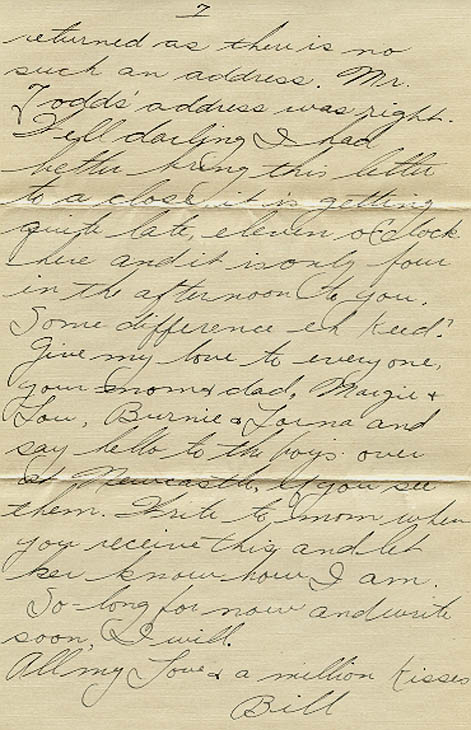 7
returned as there is no
such an address. Mr.
Todds' address was right.
Well darling I had
better bring this letter
to a close it is getting
quite late, eleven o'clock
here and it is only four
in the afternoon to you.
Some difference eh keed?
Give my love to everyone,
your mom & dad, Margie &
Lou, Burnie & Lorna and
say hello to the boys over
at Newcastle, if you see
them. Write to mom when
you receive this and let
her know how I am.
So-long for now and write
soon, I will.
All my Love & a million kisses
Bill